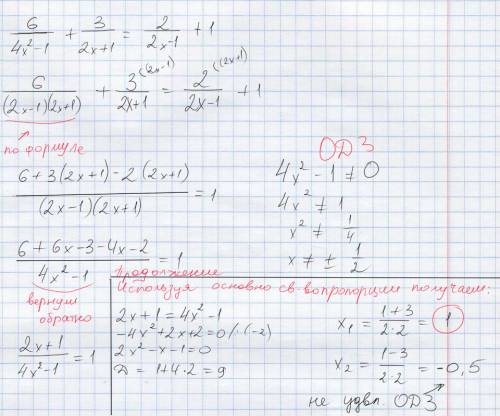 6/(4x²-1) + 3/(2x+1) = 2/(2x-1) + 1
6/((2x-1)(2x+1)) + 3^((2x-1)/(2x+1) = 2^((2x+1)/(2x-1) + 1
по формуле
(6+3(2x+1)-2(2x+1))/((2x-1)(2x+1)) = 1
(6+6x-3-4x-2)/(4x²-1) = 1
вернули
обратно
(2x+1)/(4x²-1) = 1
ОДЗ
4x²-1≠0
4x²≠1
x²≠1/4
x≠±1/2
Продолжение
Используя основно св-во пропорции получаем:
2x+1=4x²-1
-4x²+2x+2=0/:(-2)
2x²-x-1=0
D=1+4·2=9
x₁=(1+3)/(2·2)=1
x₂=(1-3)/(2·2)=-0,5
не удвл. ОДЗ